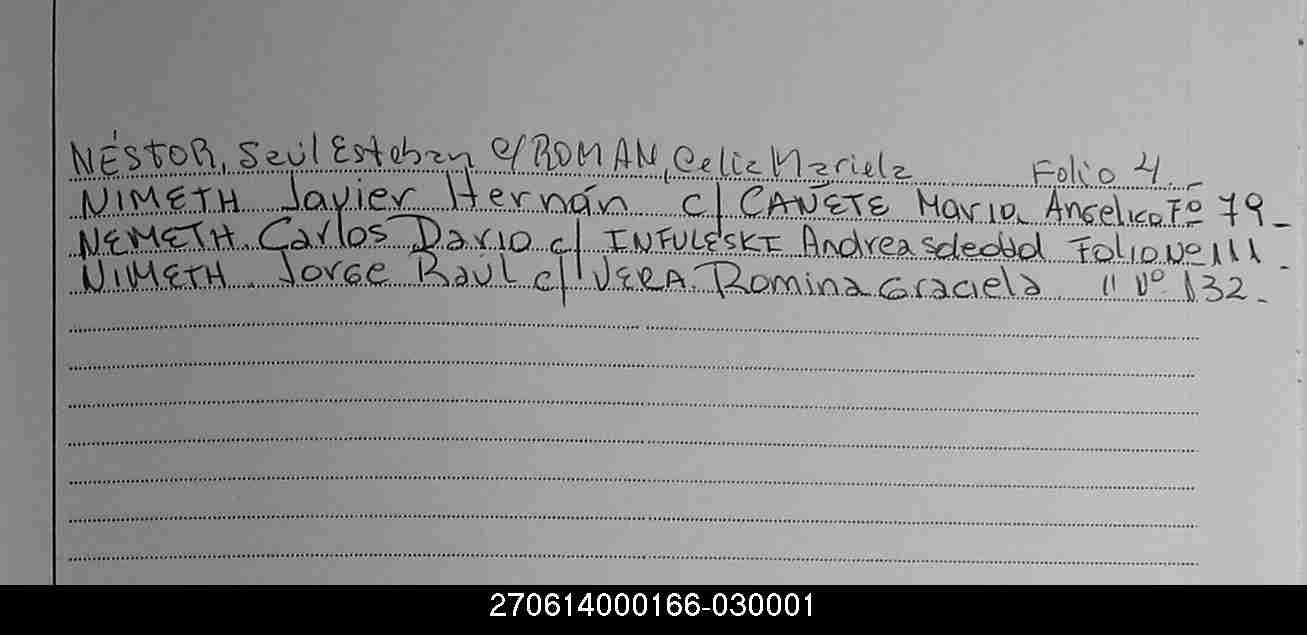 NÉSTOR, Saúl Esteban c/ ROMAN, Celia Mariela Folio 4
NIMETH Javier Hernán c/ CAÑETE Maria Angelica Fº 79_
NEMETH. Carlos Dario c/ INFULESKI Andrea Folio Nº 111_
NIMETH. Jorge Raúl c/ VERA. Romina Graciela " Nº 132_
270614000166-030001